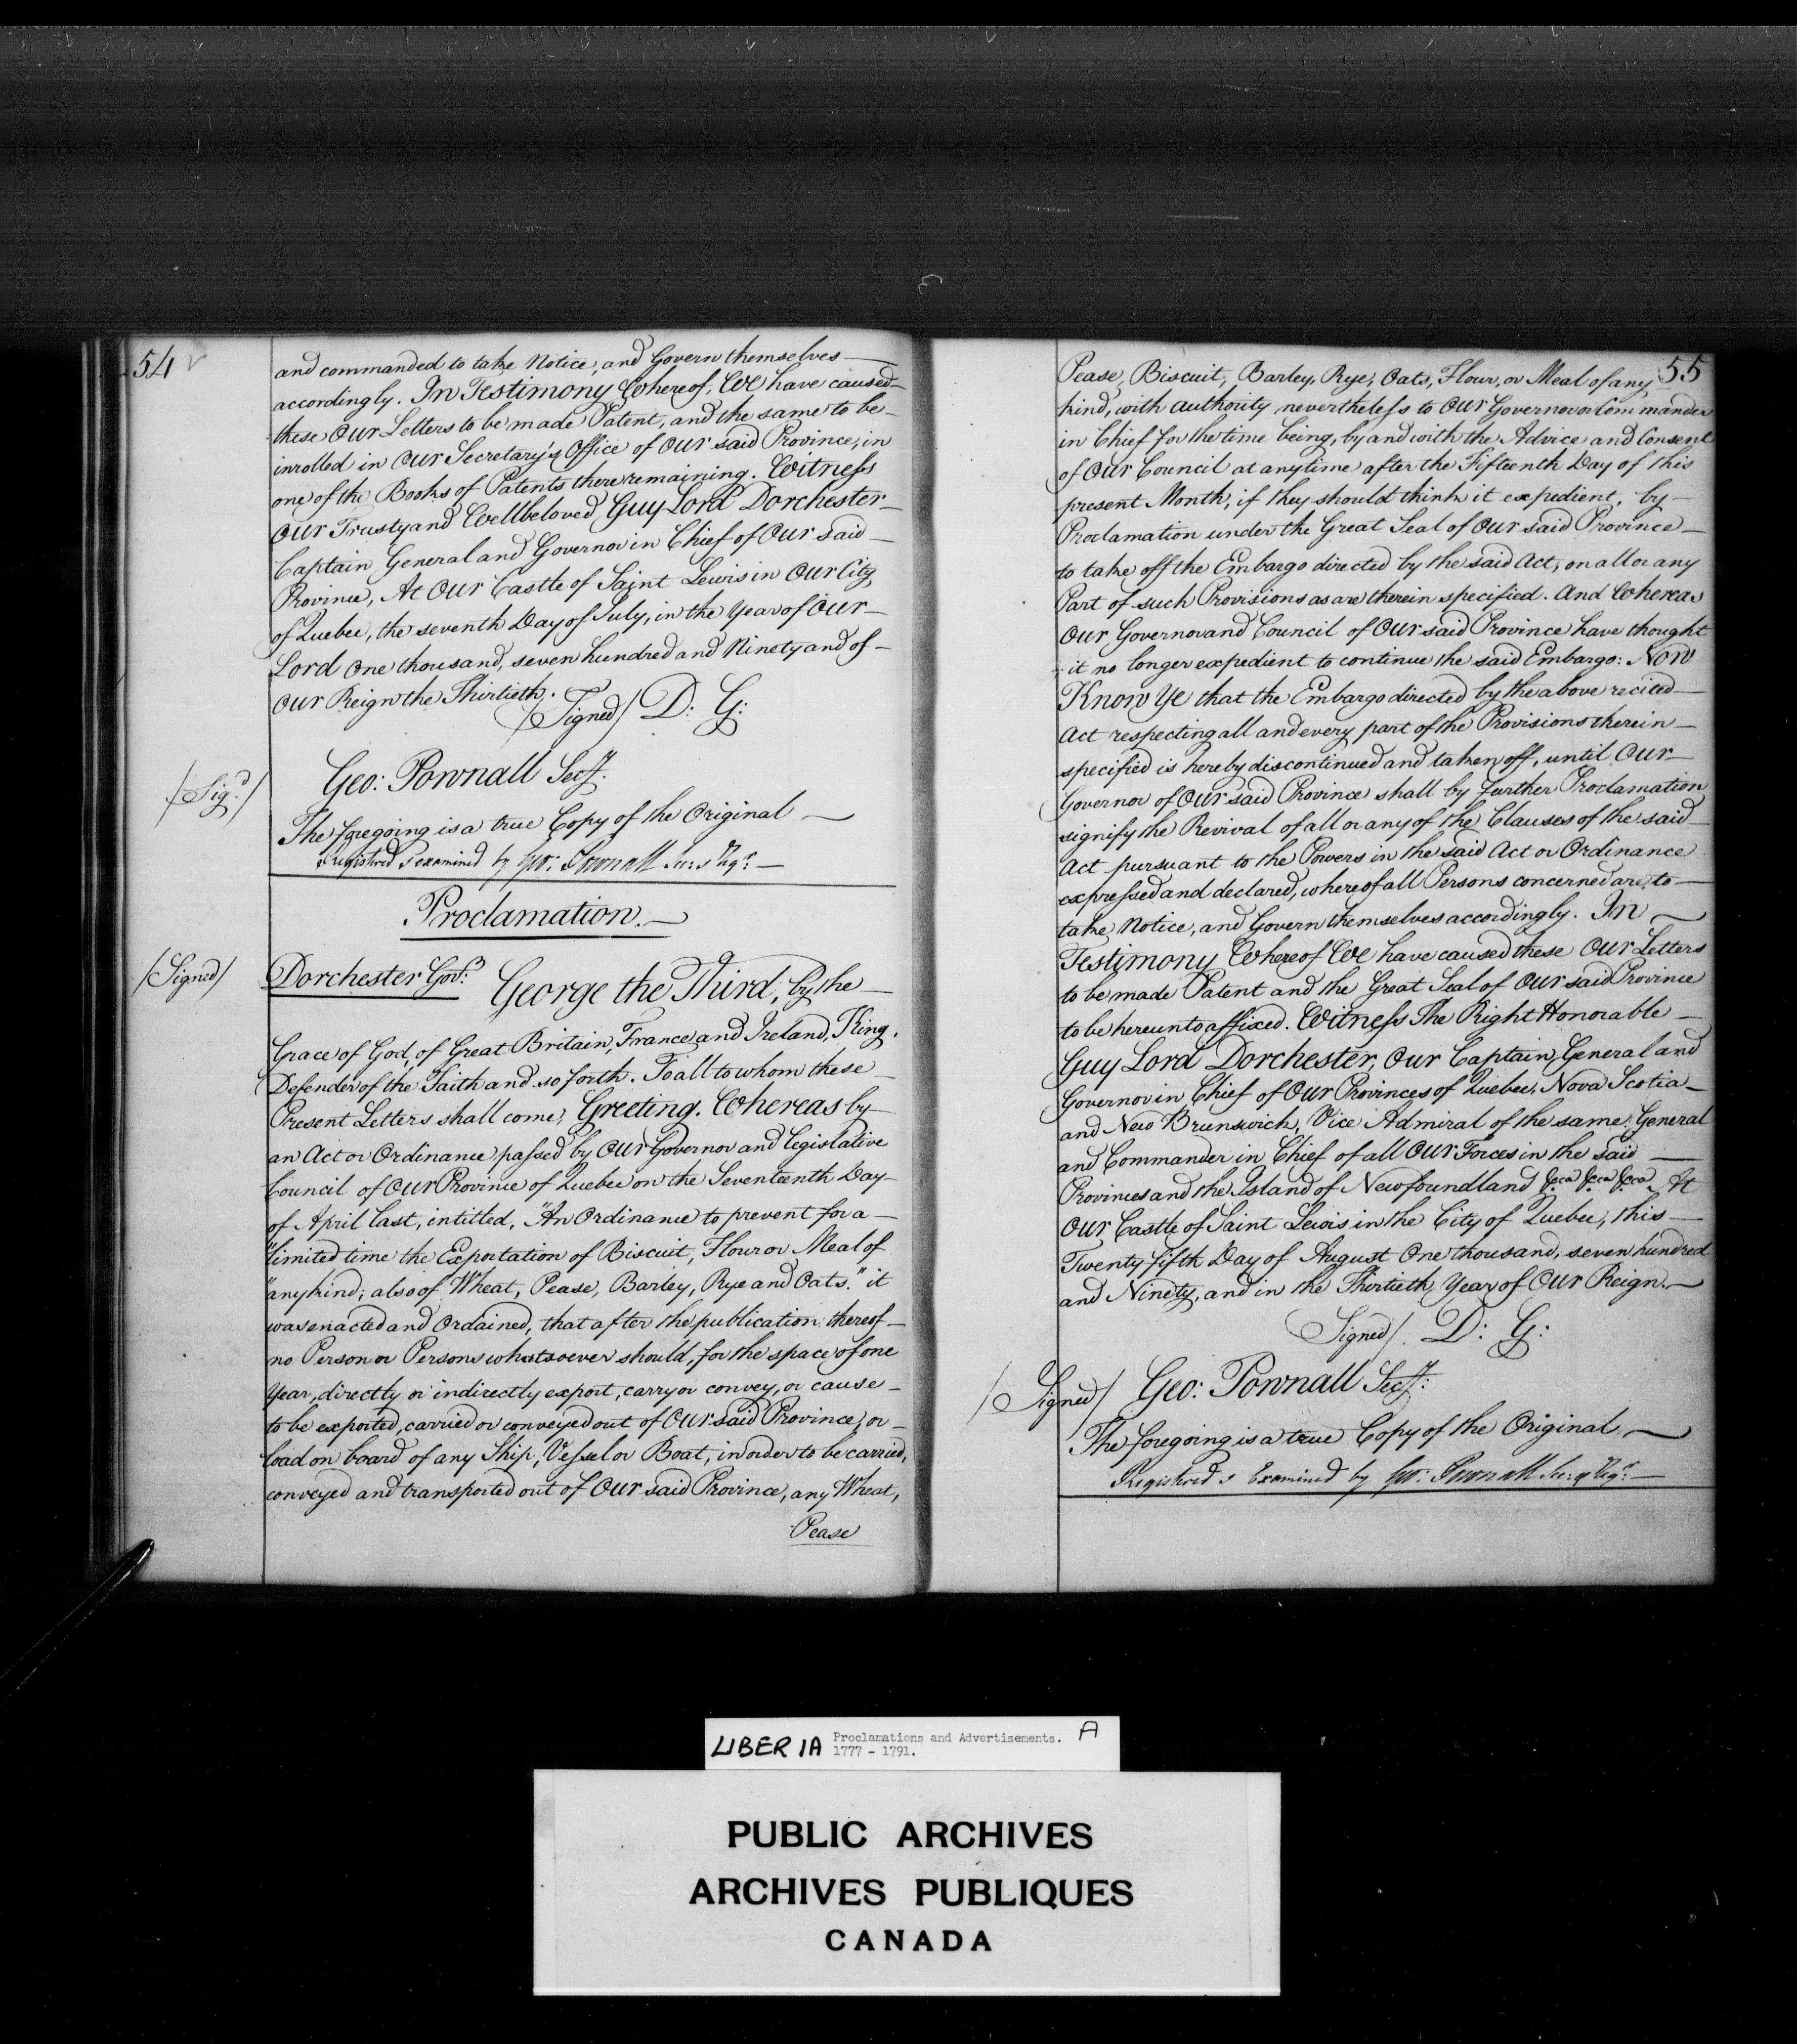 54
and commanded to take Notice, and Govern themselves
accordingly. In Testimony Whereof, We have caused
these Our Letters to be made Patent, and the same to be
inrolled in Our Secretary's Office of Our said Province, in
one of the Books of Patents there remaining. Witness
Our Trusty and Wellbeloved Guy Lord Dorchester
Captain General and Governor in Chief of Our said
Province, At Our Castle of Saint Lewis in Our City
of Quebec, the seventh Day of July, in the Year of Our
Lord One thousand, seven hundred and Ninety and of
Our Reign the Thirtieth.
/Signed/ D: G:
/Sig.d/ Geo: Pownall Secy.
The foregoing is a true Copy of the Original
Registred & examined by Geo: Pownall Secy & Regr.
Proclamation.
/Signed/ Dorchester Govr. George the Third, by the
Grace of God, of Great Britain, France and Ireland, King,
Defender of the Faith and so forth. To all to whom these
Present Letters shall come, Greeting. Whereas by
an Act or Ordinance passed by Our Governor and Legislative
Council of Our Province of Quebec on the Seventeenth Day
of April last, intitled, "An Ordinance to prevent for a
"limited time the Exportation of Biscuit, Flour or Meal of
"any kind; also of Wheat, Pease, Barley, Rye and Oats." it
was enacted and Ordained, that after the publication thereof
no Person or Persons whatsoever should, for the space of one
Year, directly or indirectly export, carry or convey, or cause
to be exported, carried or conveyed out of Our said Province, or
load on board of any Ship, Vessel or Boat, in order to be carried,
conveyed and transported out of Our said Province, any Wheat,
Pease
55
Pease, Biscuit, Barley, Rye, Oats, Flour, or Meal of any
kind, with authority nevertheless to Our Governor or Commander
in Chief for the time being, by and with the Advice and Consent
of Our Council at any time after the Fifteenth Day of this
present Month, if they should think it expedient, by
Proclamation under the Great Seal of Our said Province
to take off the Embargo directed by the said Act, on all or any
Part of such Provisions as are therein specified. And Whereas
Our Governor and Council of Our said Province have thought
it no longer expedient to continue the said Embargo: Now
Know Ye that the Embargo directed by the above recited
Act respecting all and every part of the Provisions therein
specified is hereby discontinued and taken off, until Our
Governor of Our said Province shall by further Proclamation
signify the Revival of all or any of the Clauses of the said
Act pursuant to the Powers in the said Act or Ordinance
expressed and declared, whereof all Persons concerned are to
take Notice, and Govern themselves accordingly. In
Testimony Whereof We have caused these Our Letters
to be made Patent and the Great Seal of Our said Province
to be hereunto affixed. Witness The Right Honorable
Guy Lord Dorchester, Our Captain General and
Governor in Chief of Our Provinces of Quebec, Nova Scotia
and New Brunswick, Vice Admiral of the same, General
and Commander in Chief of all Our Forces in the said
Provinces and the Island of Newfoundland &ca &ca &ca At
Our Castle of Saint Lewis in the City of Quebec, this
Twenty fifth Day of August One thousand, seven hundred
and Ninety, and in the Thirtieth Year of Our Reign.
Signed/ D: G:
/Signed/ Geo: Pownall Secy:
The foregoing is a true Copy of the Original
Registred & Examined by Geo: Pownall Secy & Regr.
LIBER 1A Proclamations and Advertisements. A
1777 - 1791.
PUBLIC ARCHIVES
ARCHIVES PUBLIQUES
CANADA